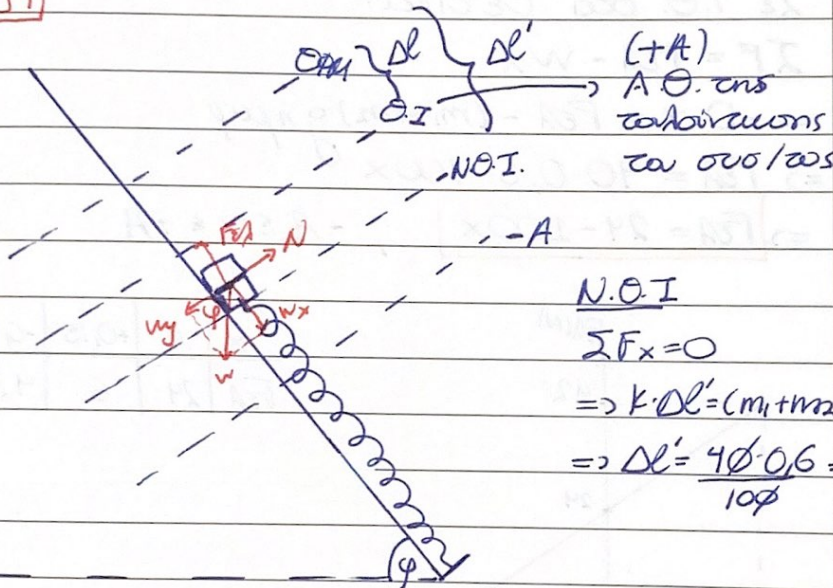 ΘΦΜ Δl Δl' (+A)
Θ.Ι → Α.Θ. της
ταλάντωσης
Ν.Θ.Ι. του συσ/τος
-A
Fελ N
Wy φ Wx
W
Ν.Θ.Ι
ΣFx=0
=> K·Δl'=(m1+m2
=> Δl'= 40·0,6 =
100
φ